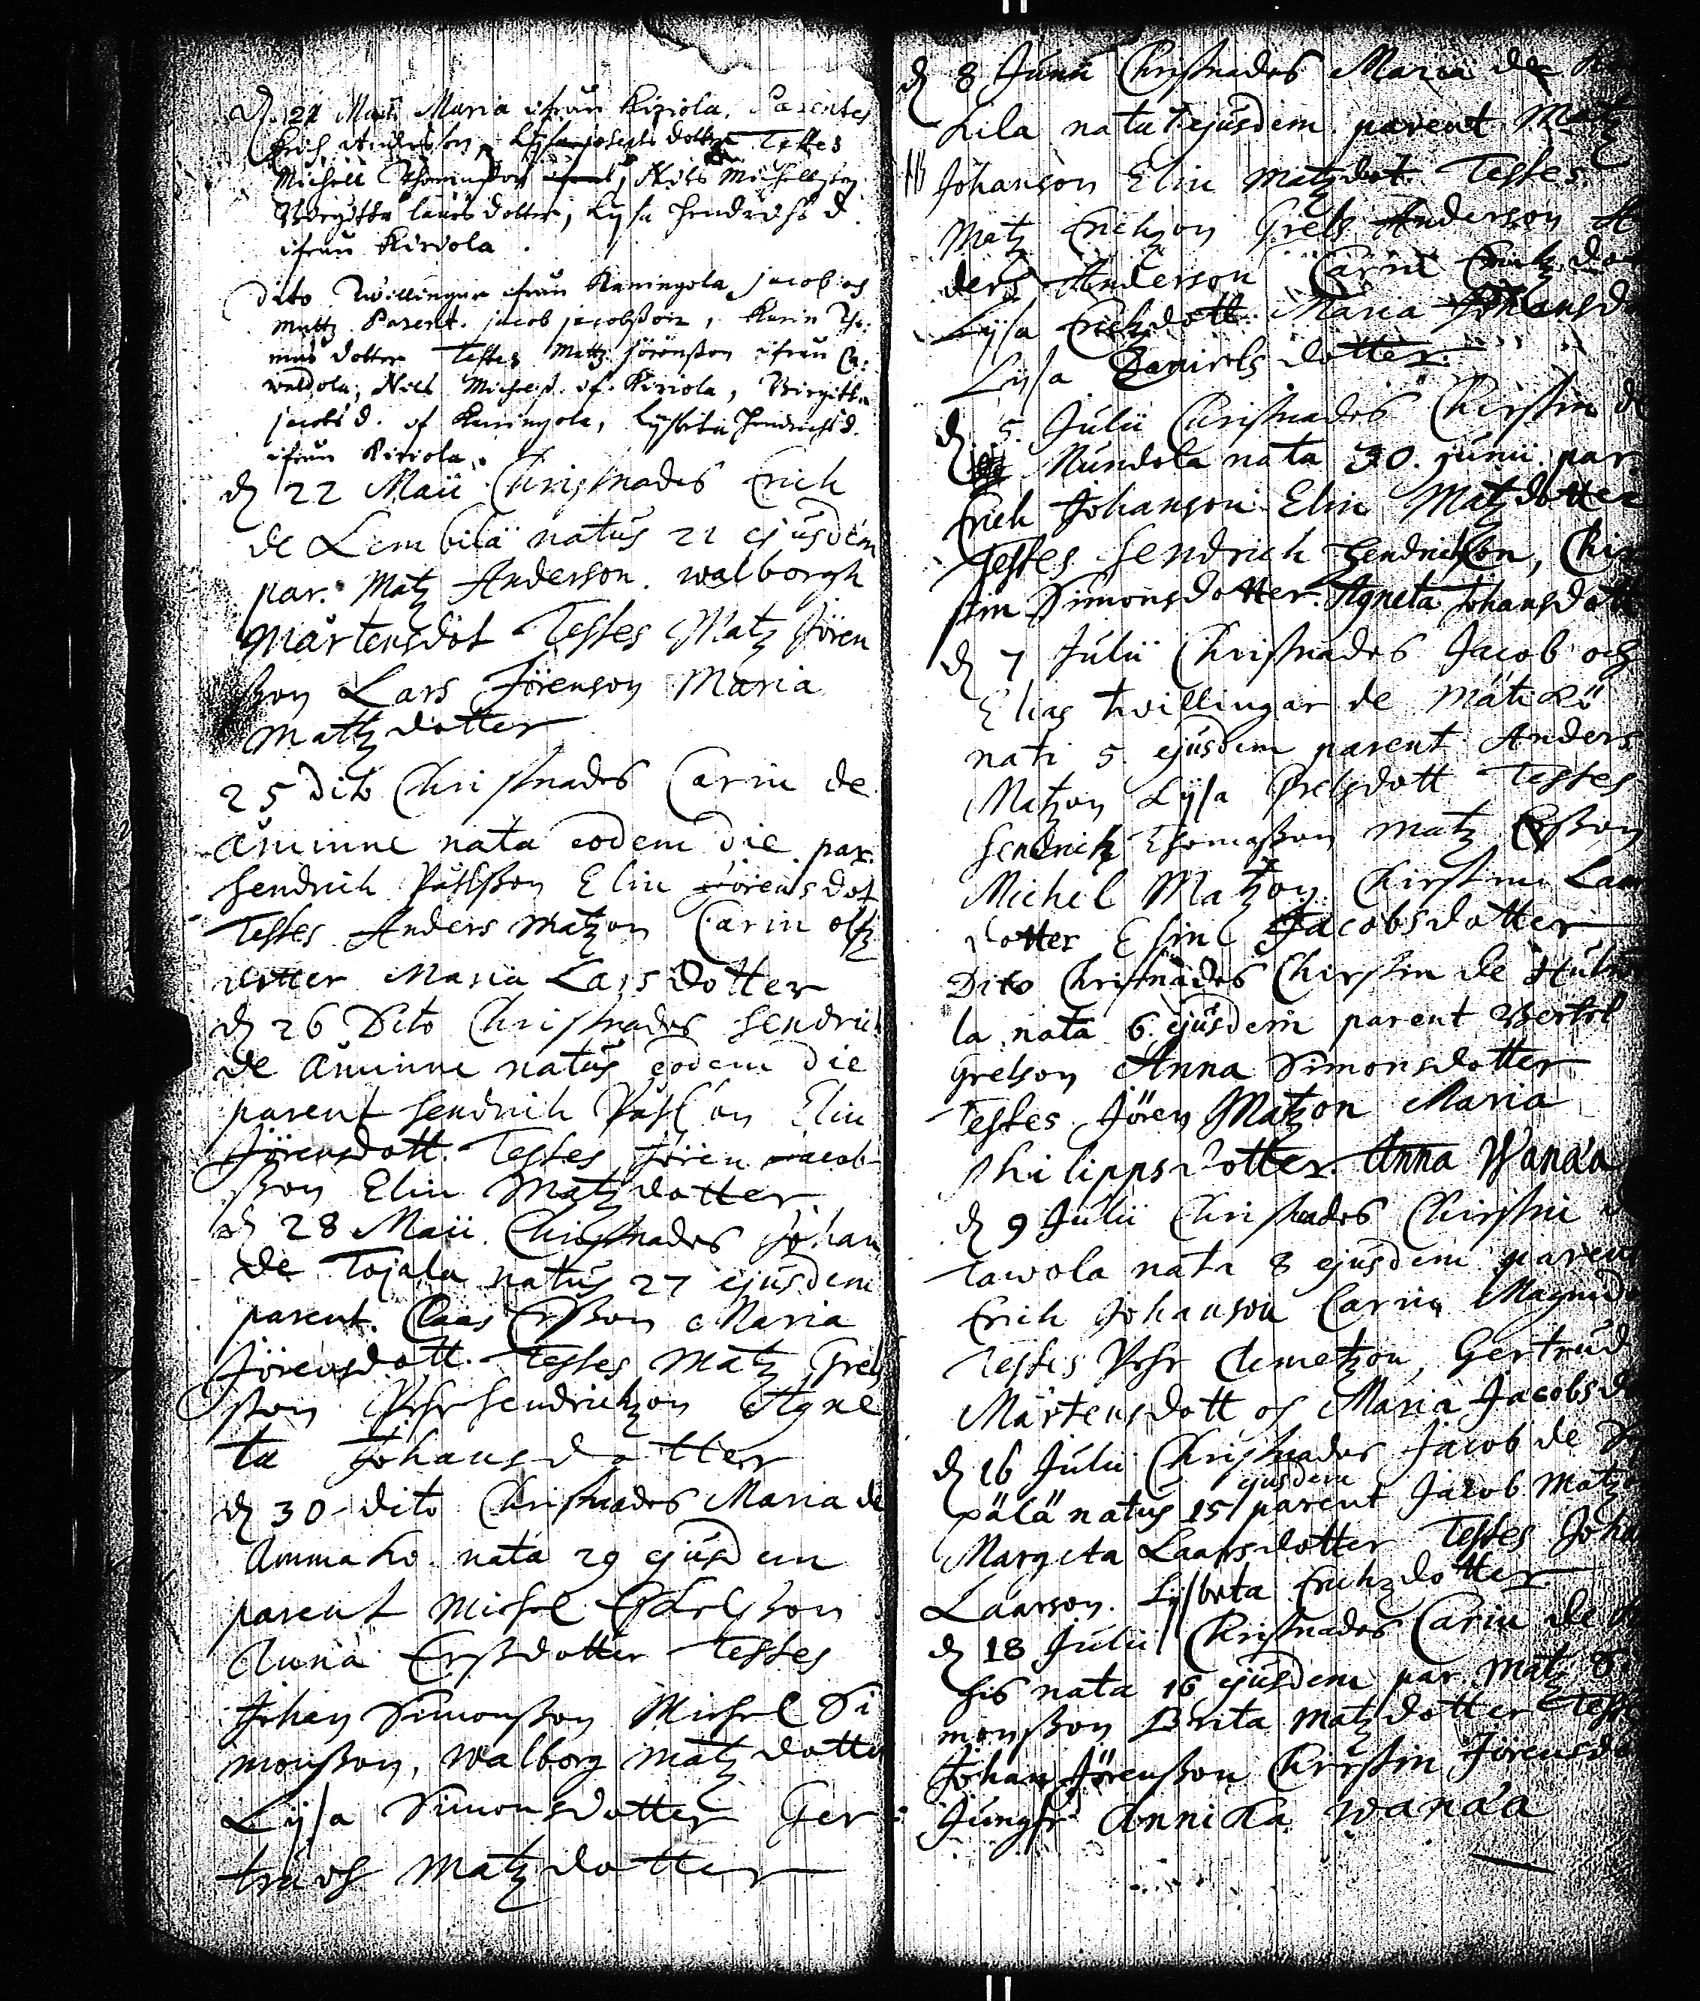 D. 21 Maii Maria ifrån Kiriola. Parentes
Erich Andersson, Lysa josephs dotter Testes
Michell Thomasson, Nils Michellson
Birgitta lauris dotter, Lysa Hendrichs d.
ifrån Kiriola.
Dito Twillingar ifrån Kaningola jacob och
Mattz. Parent. jacob jacobsson, Karin Tho-
mas dotter Testes Mattz Jörensson ifrån
waldola, Nils Michels. af Kiriola, Birgitta
jacobs d. af Kaningola, Lysbeta Hendrichs d.
ifrån Kiriola.
d 22 Maii Christnades Erich
de Lembilä natus 21 ejusdem
par. Matz Anderson. walborgh
Mårtensdot Testes Matz Jören
sson Lars Jörenson Maria
Mattz dotter
25 Dito Christnades Carin de
Åminne nata eodem die par.
Hendrich Påhlsson Elin Jörensdot
Testes Anders Matzon Carin olfz
dotter Maria Larsdotter
d 26 Dito Christnades Hendrich
de Åminne natus eodem die
parent Hendrich Påhlson Elin
Jörensdott. Testes Jören Jacob-
sson Elin Matzdotter
d 28 Maii Christnades Johan
de Tojala natus 27 ejusdem
parent. Claes Ersson Maria
Jörensdott. Testes Matz Grels
sson Pehr Hendrichzon Agne
ta Johansdotter
d 30 dito Christnades Maria de
Ammako nata 29 ejusdem
parent Michel Eskelsson
Anna Ersdotter Testes
Johan Simonsson Michel Si
monsson, Walborg Matzdotter
Lysa Simonsdotter Ger
tru och Matzdotter
d 8 Junii Christnades Maria de
kila nata 7 ejusdem parent Matz
Johanson Elin Matzdot Testes
Matz Erichzon Grels Anderson
ders Anderson Carin Erichz
Lysa Erichzdott. Maria Johansdo
Lysa Danielsdotter
d 5 Julii Christnades Chirstin de
Nundola nata 30. junii par.
Erich Johanson Elin Matzdotter
Testes Hendrich Hendrichson, Chir
stin Simonsdotter. Agneta Johansdott
d 7 Julii Christnades Jacob och
Elias twillingar de Matikö
nati 5 ejusdem parent Anders
Matzon Lysa Grelsdott Testes
Hendrich Thomasson Matz Ersson
Michel Matzon Chirstin Lars
dotter Elin Jacobsdotter
Dito Christnades Chirstin de
la nata 6 ejusdem parent Bertel
Grelson Anna Simonsdotter
Testes Jören Matzon Maria
Philippsdotter Anna Wanäa
d 9 Julii Christnades Chirstin
Tawola nata 8 ejusdem parent
Erich Johanson Carin Magnido
Testes Pehr Clemetzon, Gertrud
Mårtensdott och Maria Jacobsdo
d 16 Julii Christnades Jacob de
ejusdem
pälä natus 15 parent Jacob Matzon
Margeta Laarsdotter Testes Johan
Laarson. Lysbeta Erichzdotter
d 18 Julii Christnades Carin de
his nata 16 ejusdem par. Matz Si
monsson Brita Matzdotter Testes
Johan Jörensson Chirstin Jörensdo
Jungfr Annika Wanäa